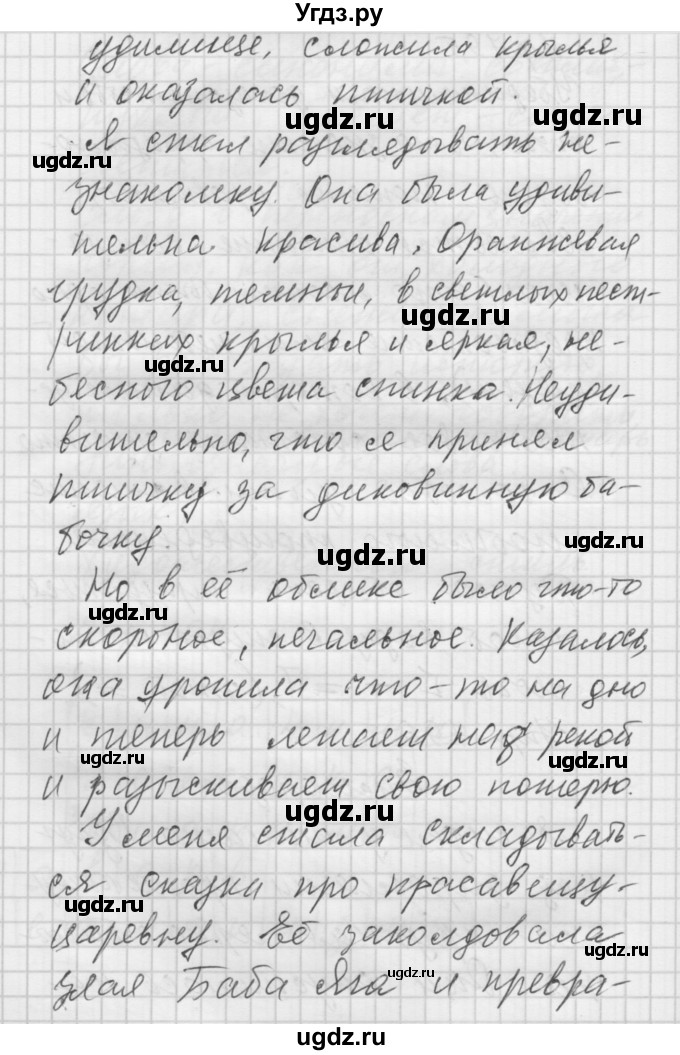 Угдз.ру
удилище, сложила крылья
и оказалась птичкой.
ugdz.ru
Я стал разглядывать не-
ugdz.ru ugdz.ru
знакомку. Она была удиви-
тельна красива. Оранжевая
грудка, темные, в светлых пест-
ugdz.ru
ринках крылья и яркая, не-
ugdz.ru
бесного цвета спинка. Неуди-
вительно, что я принял
птичку за диковинную ба-
бочку.
ugdz.ru ugdz.ru
Но в её облике было что-то
ugdz.ru
скорбное, печальное. Казалось,
она уронила что-то на дно
и теперь летает над рекой
ugdz.ru ugdz.ru
и разыскивает свою потерю.
ugdz.ru
У меня стала складывать-
ся сказка про красавицу-
ugdz.ru ugdz.ru
царевну. Её заколдовала
злая Баба Яга и превра-
ugdz.ru
ugdz.ru
ugdz.ru